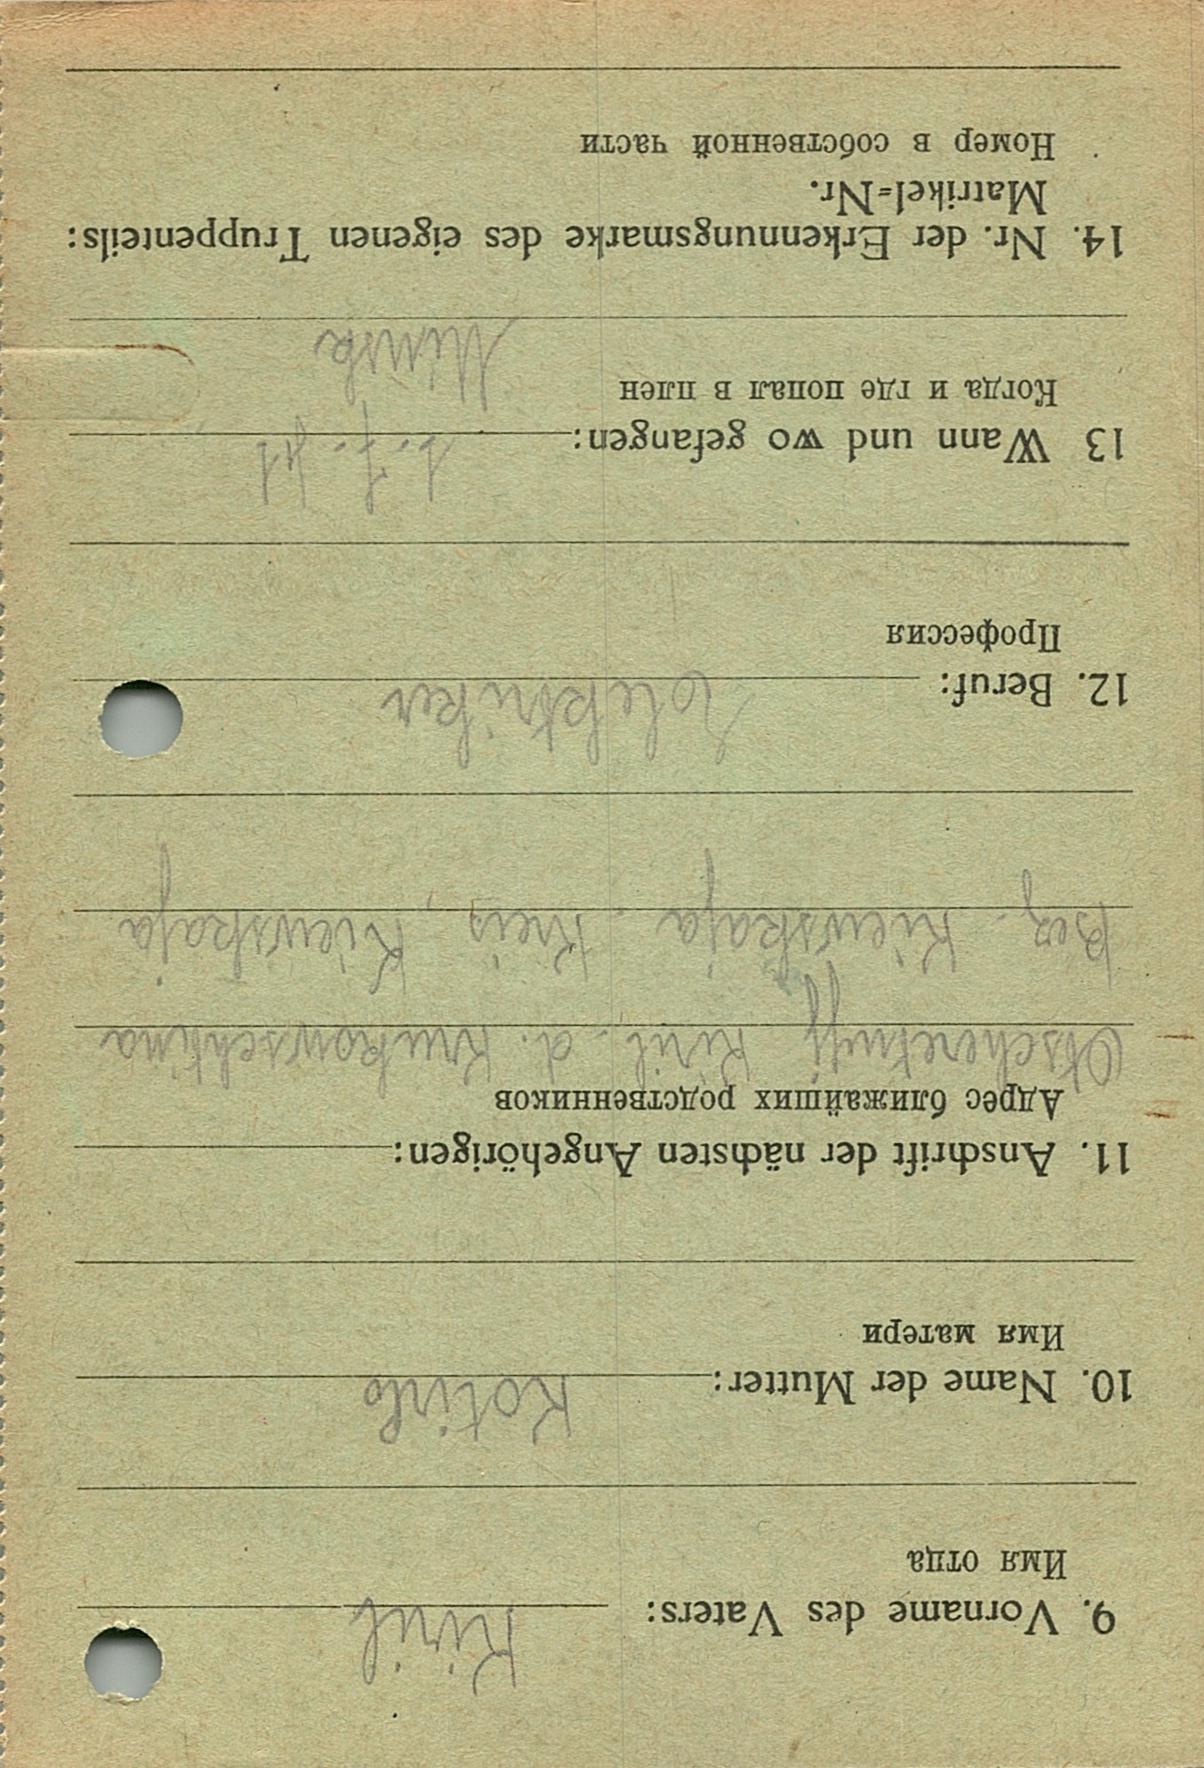 9. Vorname des Vaters: Kiril
Имя отца
10. Name der Mutter: Kotirlo
Имя матери
11. Anschrift der nächsten Angehörigen:
Адрес ближайших родственников
Kiril. d. Krukowschtina
Bez. Kiewskaja. Kreis, Kiewskaja
12. Beruf: Elektriker
Профессия
13 Wann und wo gefangen: 1. 7. 41
Когда и где попал в плен
Minsk
14. Nr. der Erkennungsmarke des eigenen Truppenteils:
Matrikel=Nr.
Номер в собственной части